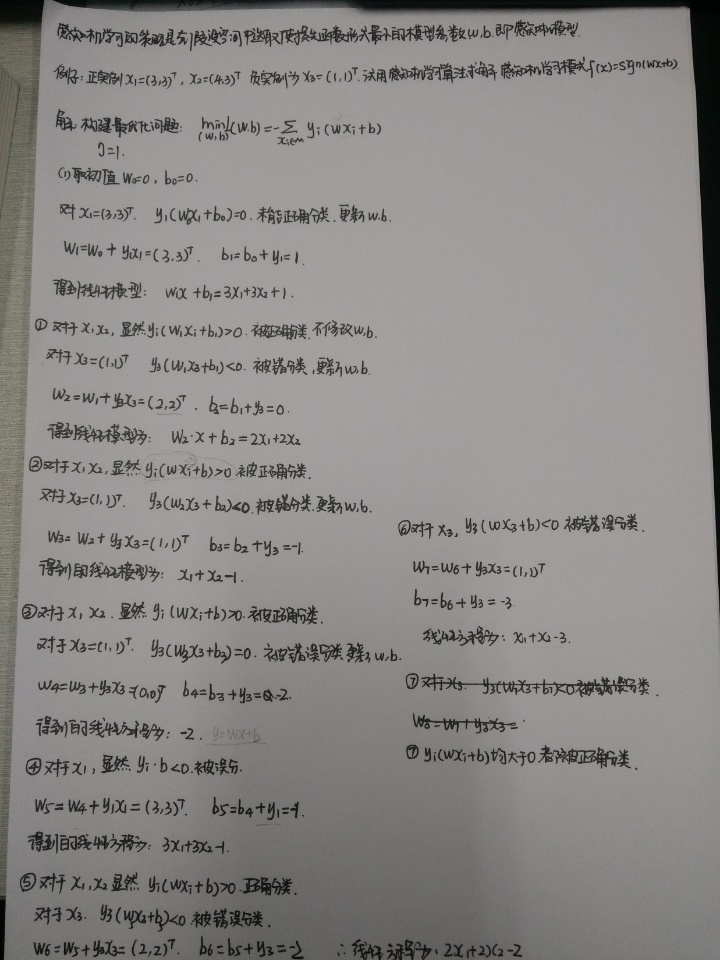 感知机学习的策略是在假设空间中选取使损失函数形式最小的模型参数w,b.即感知机模型.
例子:正实例x₁=(3,3)ᵀ, x₂=(4,3)ᵀ 负实例为x₃=(1,1)ᵀ.试用感知机学习算法求解感知机学习模式f(x)=sign(wx+b)
解:构建最优化问题: min(w,b) L(w,b)=-Σ_{xᵢ∈M} yᵢ(wxᵢ+b)
η=1.
(1)取初值 w₀=0, b₀=0.
对x₁=(3,3)ᵀ. y₁(w₀x₁+b₀)=0.未能正确分类.更新w.b.
w₁=w₀+y₁x₁=(3,3)ᵀ. b₁=b₀+y₁=1.
得到线性模型: w₁x+b₁=3x₁+3x₂+1.
①对于x₁x₂,显然yᵢ(w₁xᵢ+b₁)>0.被正确分类.不修改w.b.
对于x₃=(1,1)ᵀ y₃(w₁x₃+b₁)<0.被错分类,更新w.b.
w₂=w₁+y₃x₃=(2,2)ᵀ. b₂=b₁+y₃=0.
得到线性模型为: w₂·x+b₂=2x₁+2x₂
②对于x₁x₂,显然yᵢ(wxᵢ+b)>0被正确分类.
对于x₃=(1,1)ᵀ. y₃(w₂x₃+b₂)<0.被错分类.更新w.b.
w₃=w₂+y₃x₃=(1,1)ᵀ b₃=b₂+y₃=-1.
得到的线性模型为: x₁+x₂-1.
③对于x₁x₂.显然yᵢ(wxᵢ+b)>0.被正确分类.
对于x₃=(1,1)ᵀ. y₃(w₃x₃+b₃)=0.被错误分类更新w.b.
w₄=w₃+y₃x₃=(0,0)ᵀ b₄=b₃+y₃=-2.
得到的线性方程为: -2. y=wx+b
④对于x₁,显然yᵢ·b<0.被误分.
w₅=w₄+y₁x₁=(3,3)ᵀ. b₅=b₄+y₁=-1.
得到的线性方程为: 3x₁+3x₂-1.
⑤对于x₁,x₂显然yᵢ(wxᵢ+b)>0.正确分类.
对于x₃. y₃(w₅x₃+b₅)<0被错误分类.
w₆=w₅+y₃x₃=(2,2)ᵀ. b₆=b₅+y₃=-2 ∴线性方程为:2x₁+2x₂-2
⑥对于x₃, y₃(wx₃+b)<0被错误分类.
w₇=w₆+y₃x₃=(1,1)ᵀ
b₇=b₆+y₃=-3.
线性方程为: x₁+x₂-3.
⑦对于x₃. y₃(w₇x₃+b₇)<0被错误分类.
w₈=w₇+y₃x₃=
⑦yᵢ(wxᵢ+b)均大于0都被正确分类.